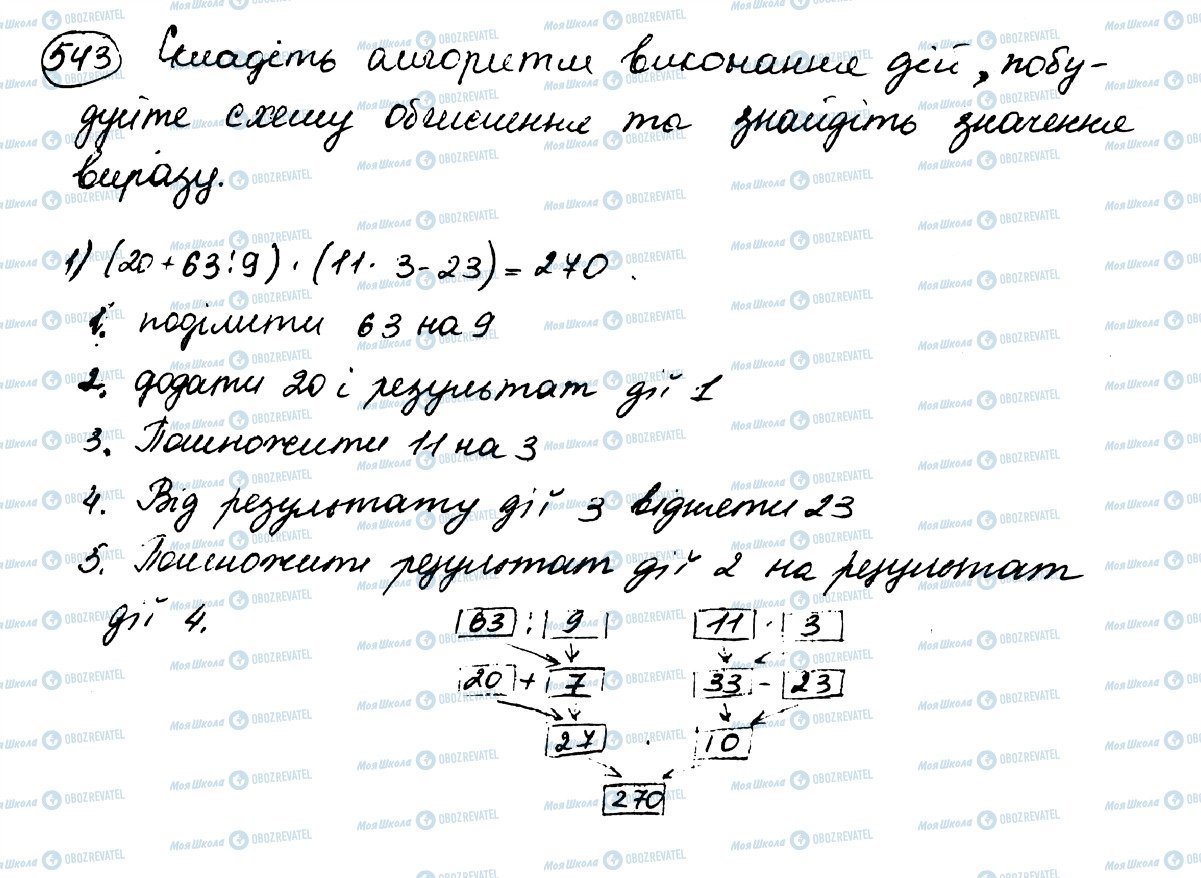 543 Складіть алгоритм виконання дій, побу-
дуйте схему обчислення та знайдіть значення
виразу.
1) (20 + 63 : 9) · (11 · 3 - 23) = 270.
1. поділити 63 на 9
2. додати 20 і результат дії 1
3. Помножити 11 на 3
4. Від результату дії 3 відняти 23
5. Помножити результат дії 2 на результат
дії 4.
63 : 9 11 · 3
20 + 7 33 - 23
27 · 10
270